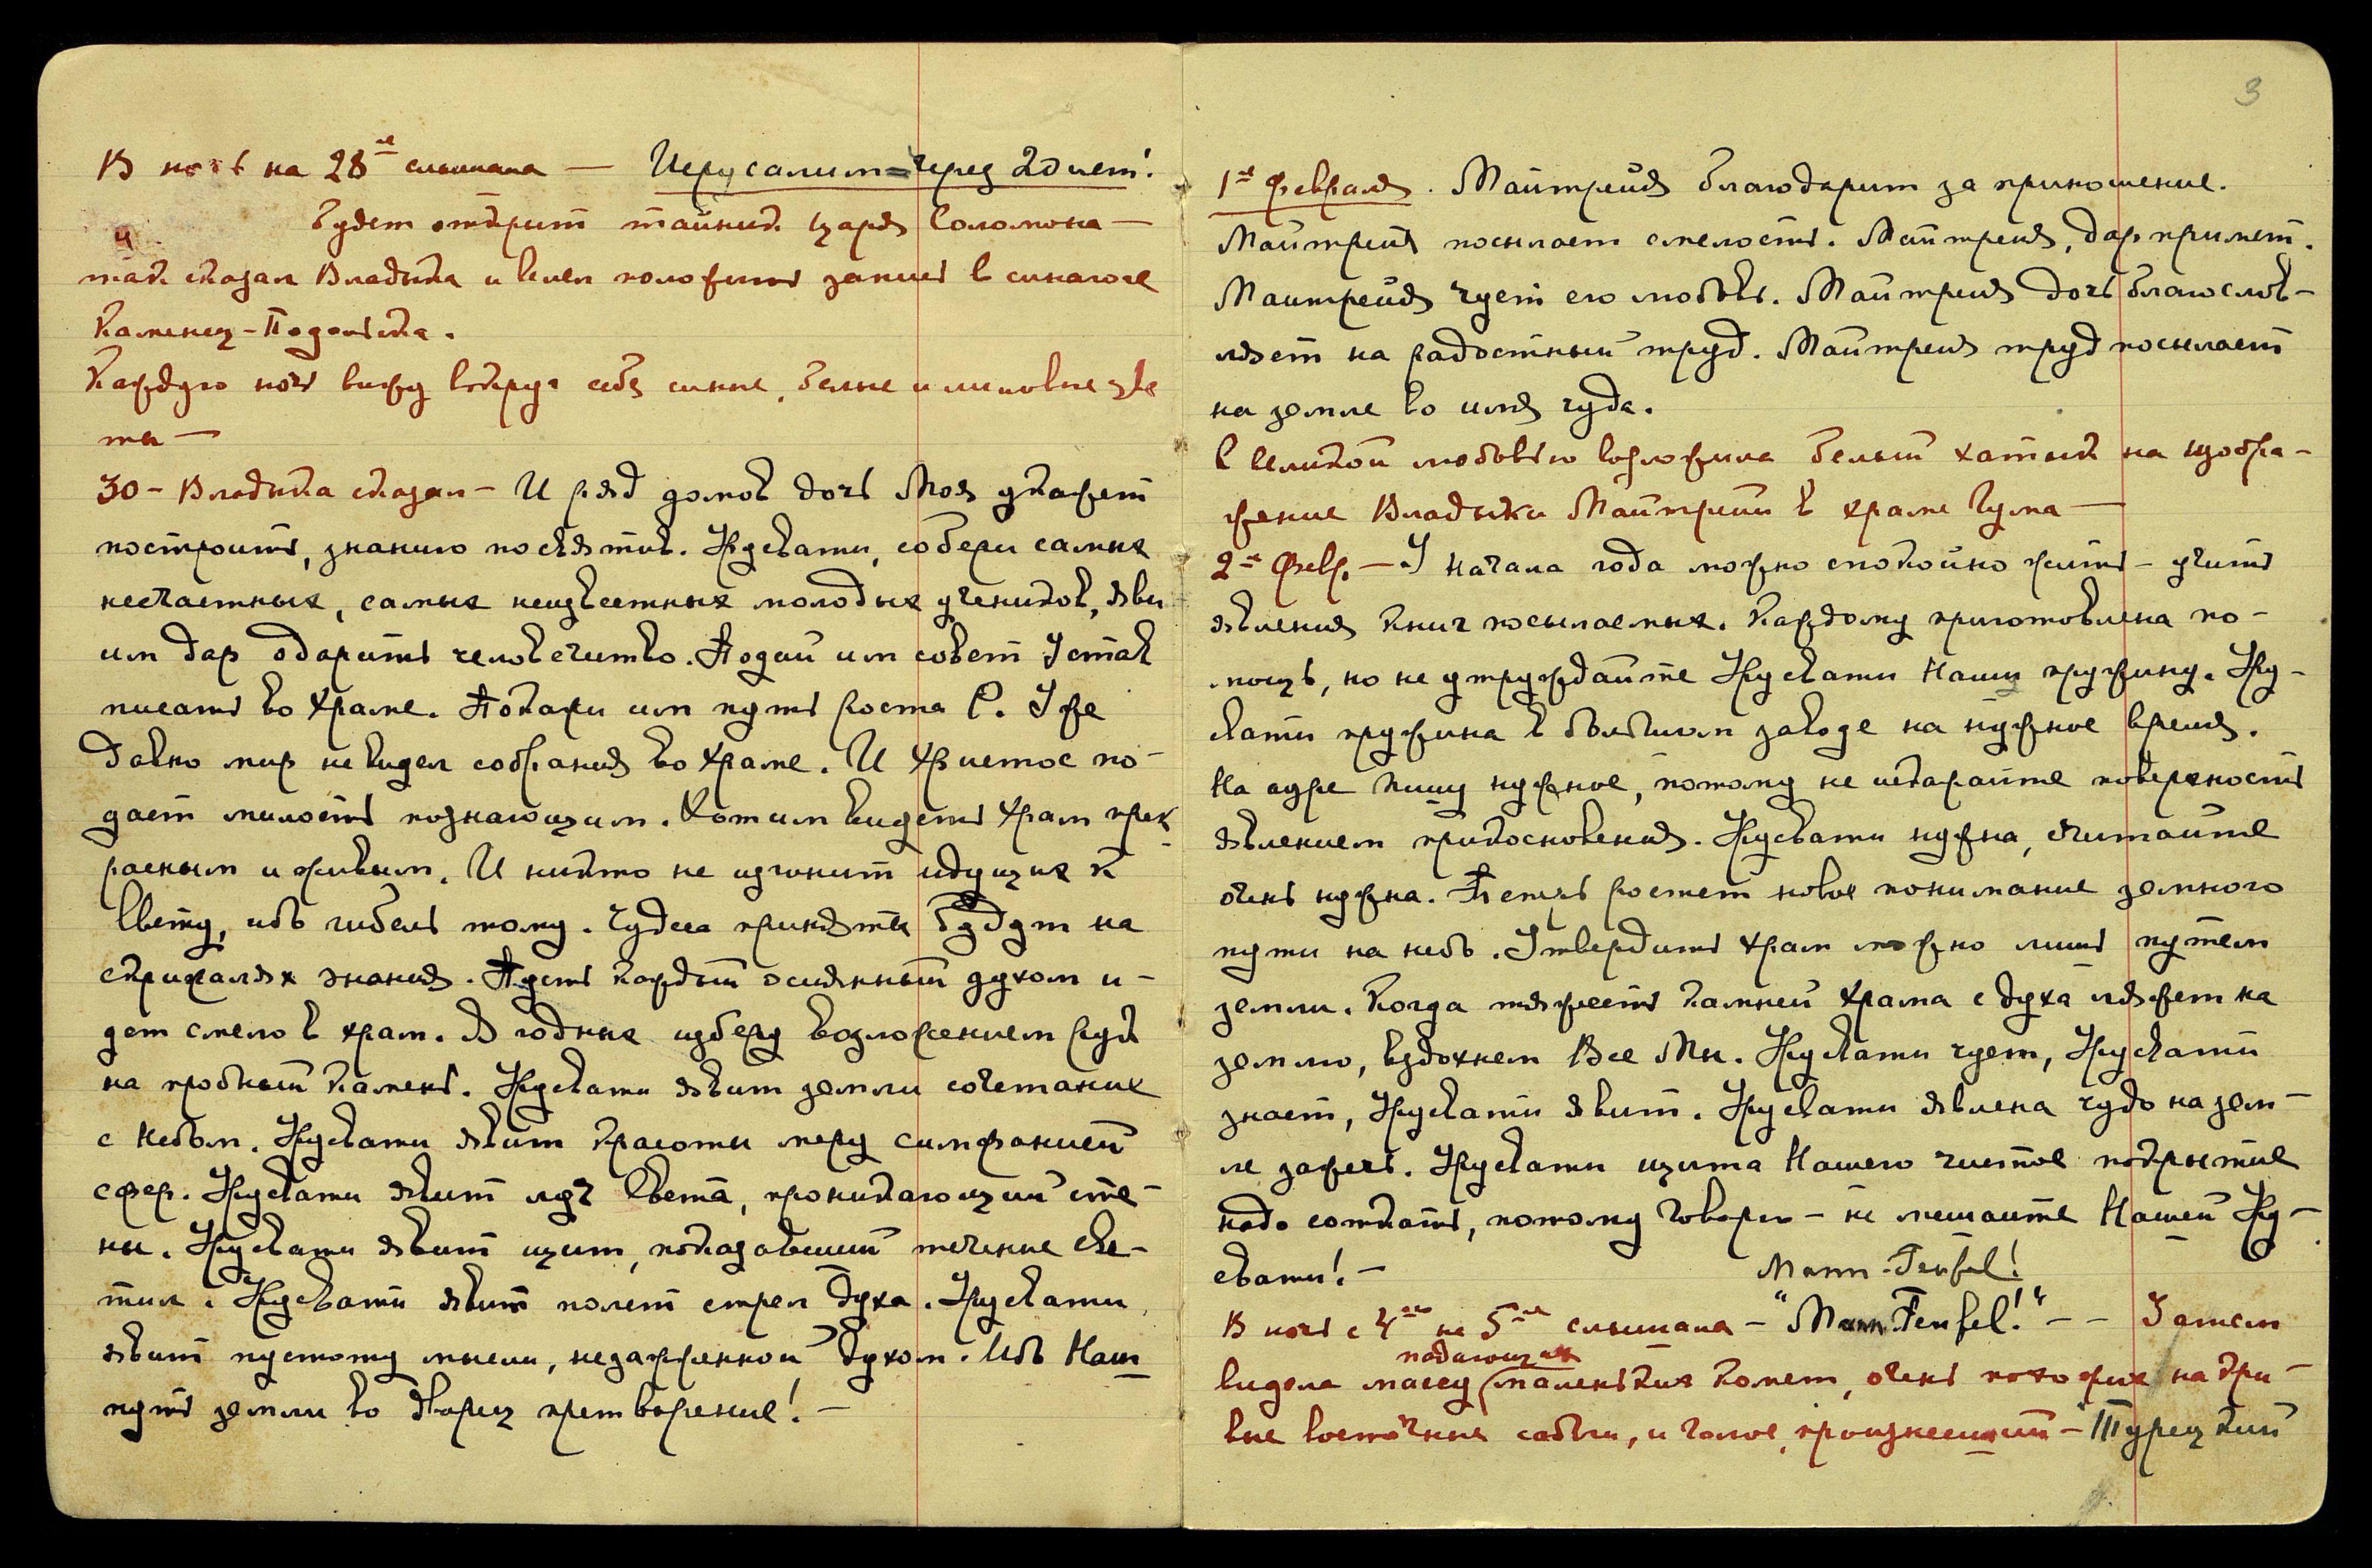 В ночь на 28ое слышала — Иерусалим = через 20 лет!
Будет открыт тайник царя Соломона —
4
так сказал Владыка и велел положить запись в синагоге
Каменец-Подольска.
Каждую ночь вижу вокруг себя синие, белые и лиловые цве
ты —
30 - Владыка сказал - И ряд домов дочь Моя укажет
построить, знанию посвятив. Урусвати, собери самых
несчастных, самых неизвестных молодых учеников, яви
им дар одарить человечество. Подай им совет Устав
писать во храме. Покажи им путь роста С. Уже
давно мир не видел собрания во храме. И Христос по-
дает милость познающим. Хотим видеть храм прек
расным и живым. И никто не изгонит идущих к
Свету, ибо гибель тому. Чудеса приняты будут на
скрижалях знания. Пусть каждый осиянный духом и-
дет смело в храм. Я годных изберу возложением рук
на пробный камень. Урусвати явит земли сочетание
с Небом. Урусвати явит красоты меру симфонией
сфер. Урусвати явит луч Света, проникающий сте-
ны. Урусвати явит щит, показавший течение све-
тил. Урусвати явит полет стрел духа. Урусвати
явит пустоту мысли, незажженной духом. Ибо Наш
путь земли во дворец претворение! —
3
1ое февраля. Майтрейя благодарит за приношение.
Майтрейя посылает смелость. Майтрейя, дар примет.
Майтрейя чует его любовь. Майтрейя дочь благослов-
ляет на радостный труд. Майтрейя труд посылает
на земле во имя чуда.
С великой любовью возложила белый хатык на изобра-
жение Владыки Майтрейи в храме Гума —
2ое февр. — У начала года можно спокойно жить - учить
явления книг посылаемых. Каждому приготовлена по-
мощь, но не утруждайте Урусвати Нашу пружину. Уру-
свати пружина в большом заводе на нужное время.
На ядре пишу нужное, потому не исцарапайте поверхность
явлением прикосновения. Урусвати нужна, считайте
очень нужна. Теперь растет новое понимание земного
пути на небо. Утвердить храм можно лишь путем
земли. Когда тяжесть камней храма с духа ляжет на
землю, вздохнем Все Мы. Урусвати чует, Урусвати
знает, Урусвати явит. Урусвати явлена чудо на зем-
ле зажечь. Урусвати щита Нашего чистое покрытие
надо соткать, потому говорю - не мешайте Нашей Уру-
свати! —
Mann-Teufel!
В ночь с 4го на 5ое слышала - "Mann-Teufel!" - - Затем
падающих
видела массу маленьких комет, очень похожие на кри-
вые восточные сабли, и голос, произнесший - Турецкий